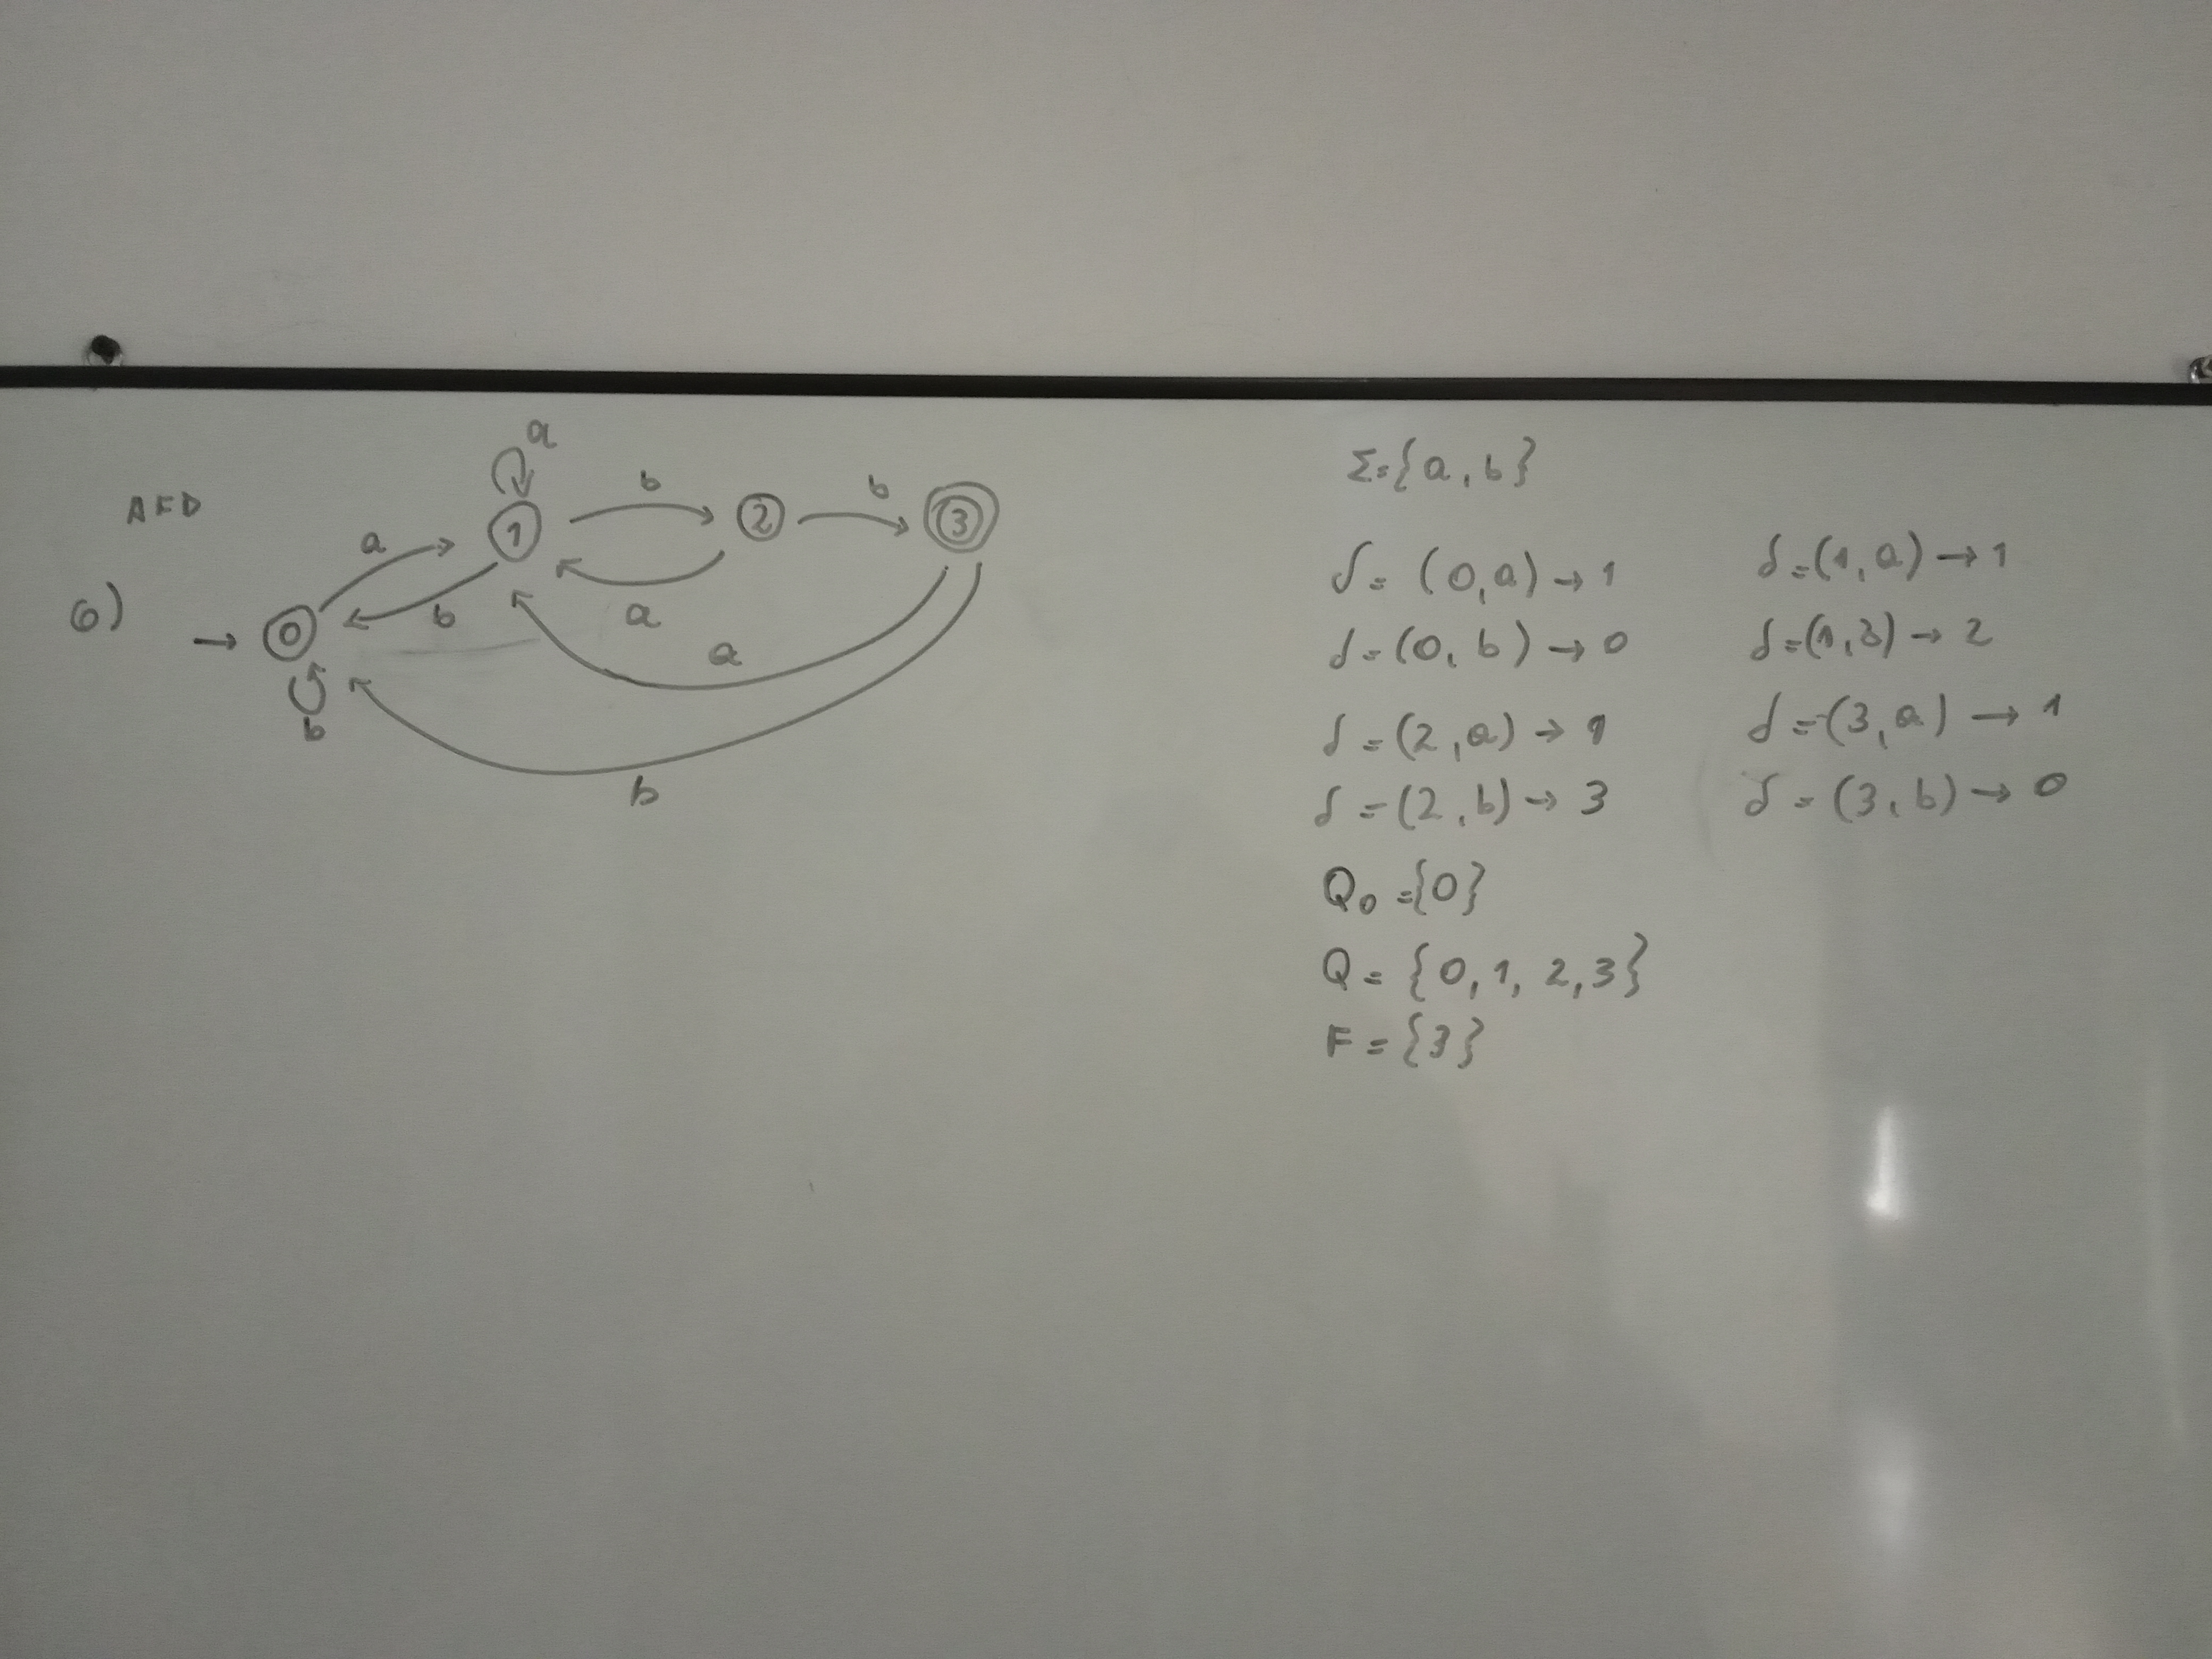 AFD
6)
a
1
b
2
b
3
a
b
a
0
b
a
b
b
Σ={a,b}
δ=(0,a)→1
δ=(0,b)→0
δ=(2,a)→1
δ=(2,b)→3
Q0={0}
Q={0,1,2,3}
F={3}
δ=(1,a)→1
δ=(1,3)→2
δ=(3,a)→1
δ=(3,b)→0